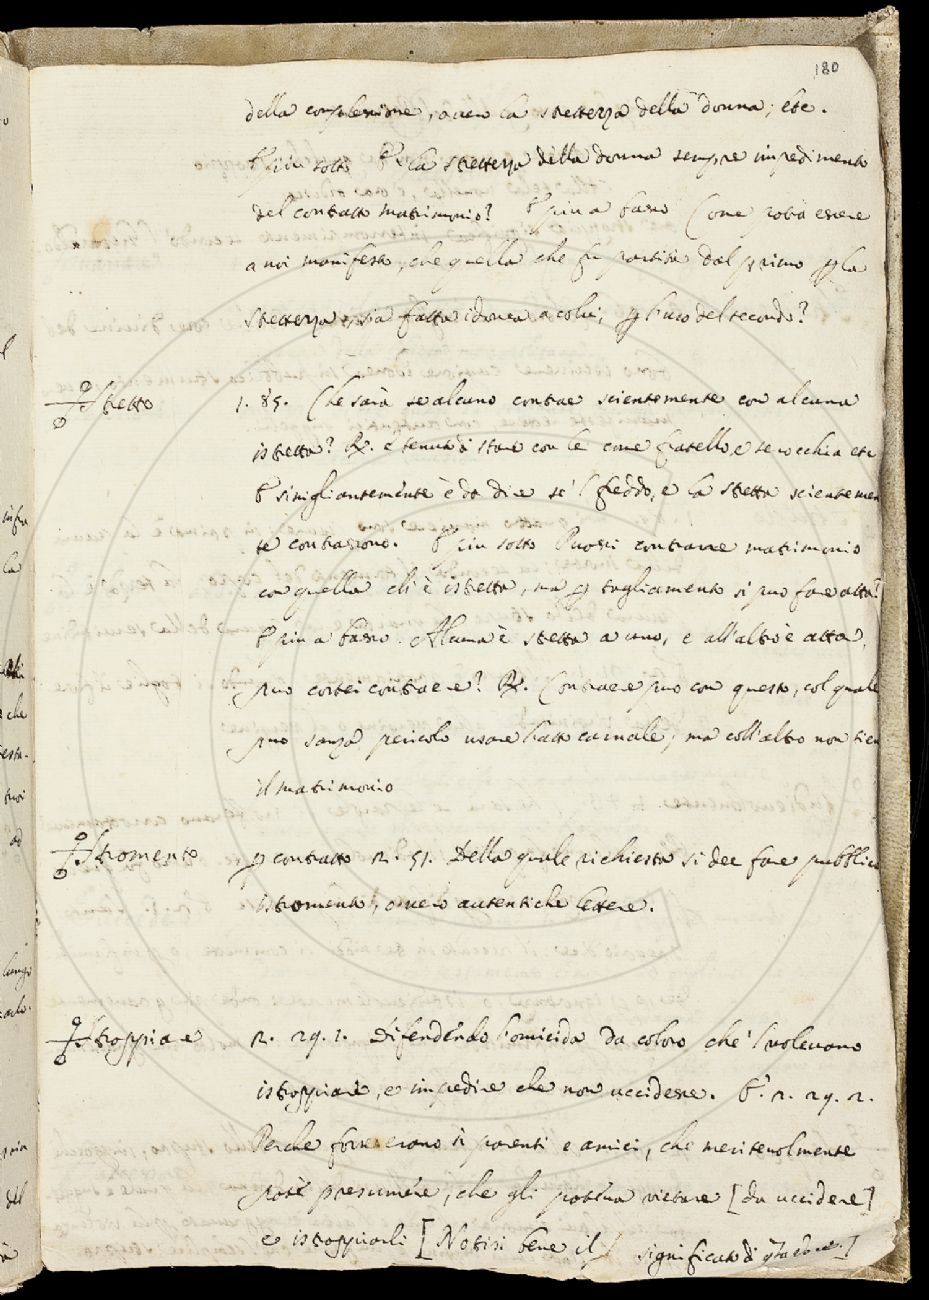 180
della complessione, overo la strettezza della donna, etc.
E più sotto E la strettezza della donna sempre impedimento
del contratto matrimonio? E più a basso Come potrà essere
a noi manifesto, che quella che fu partita dal primo ꝑ la
strettezza, sia fatta idonea a colui, ꝑ l'uso del secondo?
Istretto 1. 85. Che sarà se alcuno contrae scientemente con alcuna
istretta? R. è tenuto di stare con lei come fratello, e serocchia etc
E simigliantemente è da dire se 'l freddo, e la stretta scientemen
te contrassono. E più sotto Puossi contrarre matrimonio
con quella ch'è istretta, ma ꝑ tagliamento si può fare atta?
E più a basso. Alcuna è stretta a uno, e all'altro è atta,
può costei contraere? R. Contraere può con questo, col quale
può sanza pericolo usare l'atto carnale; ma coll'altro non tien
il matrimonio
Istromento ꝑ contratto 2. 51. Della quale richiesta si dee fare pubblico
istromento, overo autentiche lettere.
Istroppiare 2. 29. 1. Difendendo l'omicida da coloro che 'l volevano
istroppiare, e impedire che non uccidesse. E. 2. 29. 2.
Perche forse erano sì parenti e amici, che meritevolmente
potè presumere, che gli potea vietare [da uccidere]
e istropparli [Notisi bene il significato di
infra
la
che
esta-
tuoi
ad
lungi
del